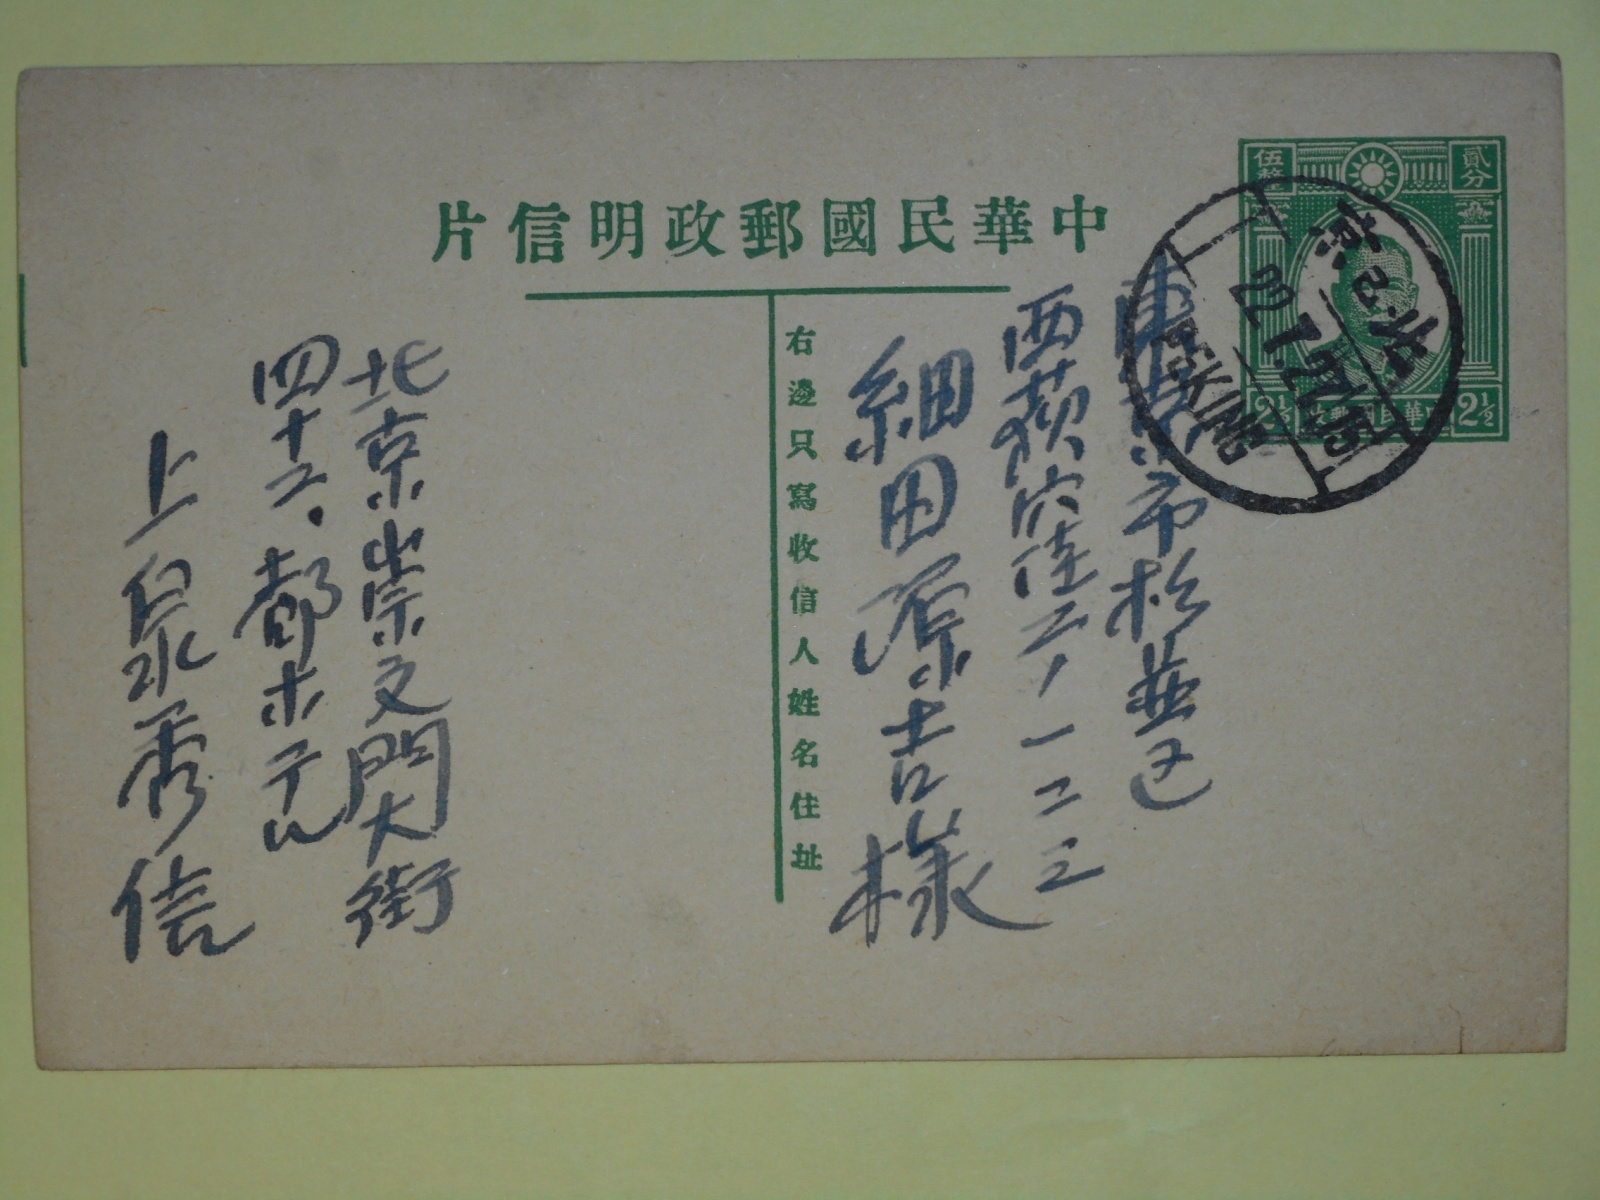 中華民國郵政明信片
伍整
貳分
中華民國郵政
2½
2½
北京
PEKING
東京市杉並区
西荻窪二ノ一二三
細田源吉様
右邊只寫收信人姓名住址
北京崇文門大街
四十二、都ホテル
上泉秀信